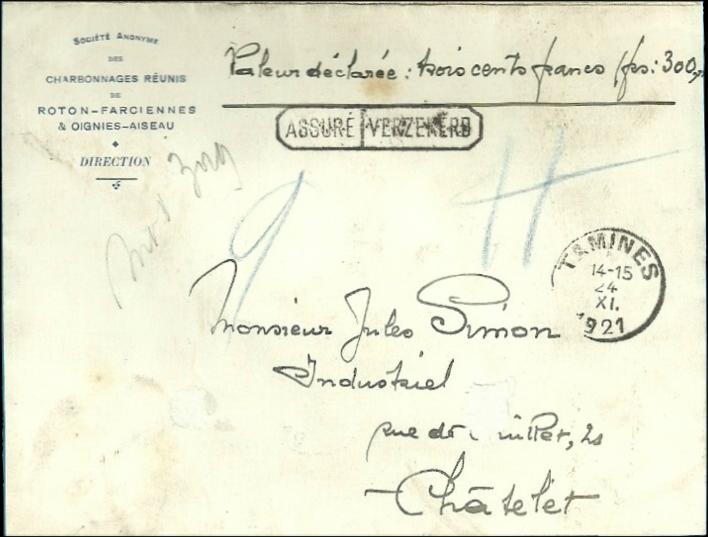 SOCIÉTÉ ANONYME
DES
CHARBONNAGES RÉUNIS
DE
ROTON-FARCIENNES
& OIGNIES-AISEAU
DIRECTION
Valeur déclarée : trois cents francs (frs: 300,
ASSURÉ VERZEKERD
TAMINES
14-15
24
XI.
1921
Monsieur Jules Simon
Industriel
rue de
Châtelet